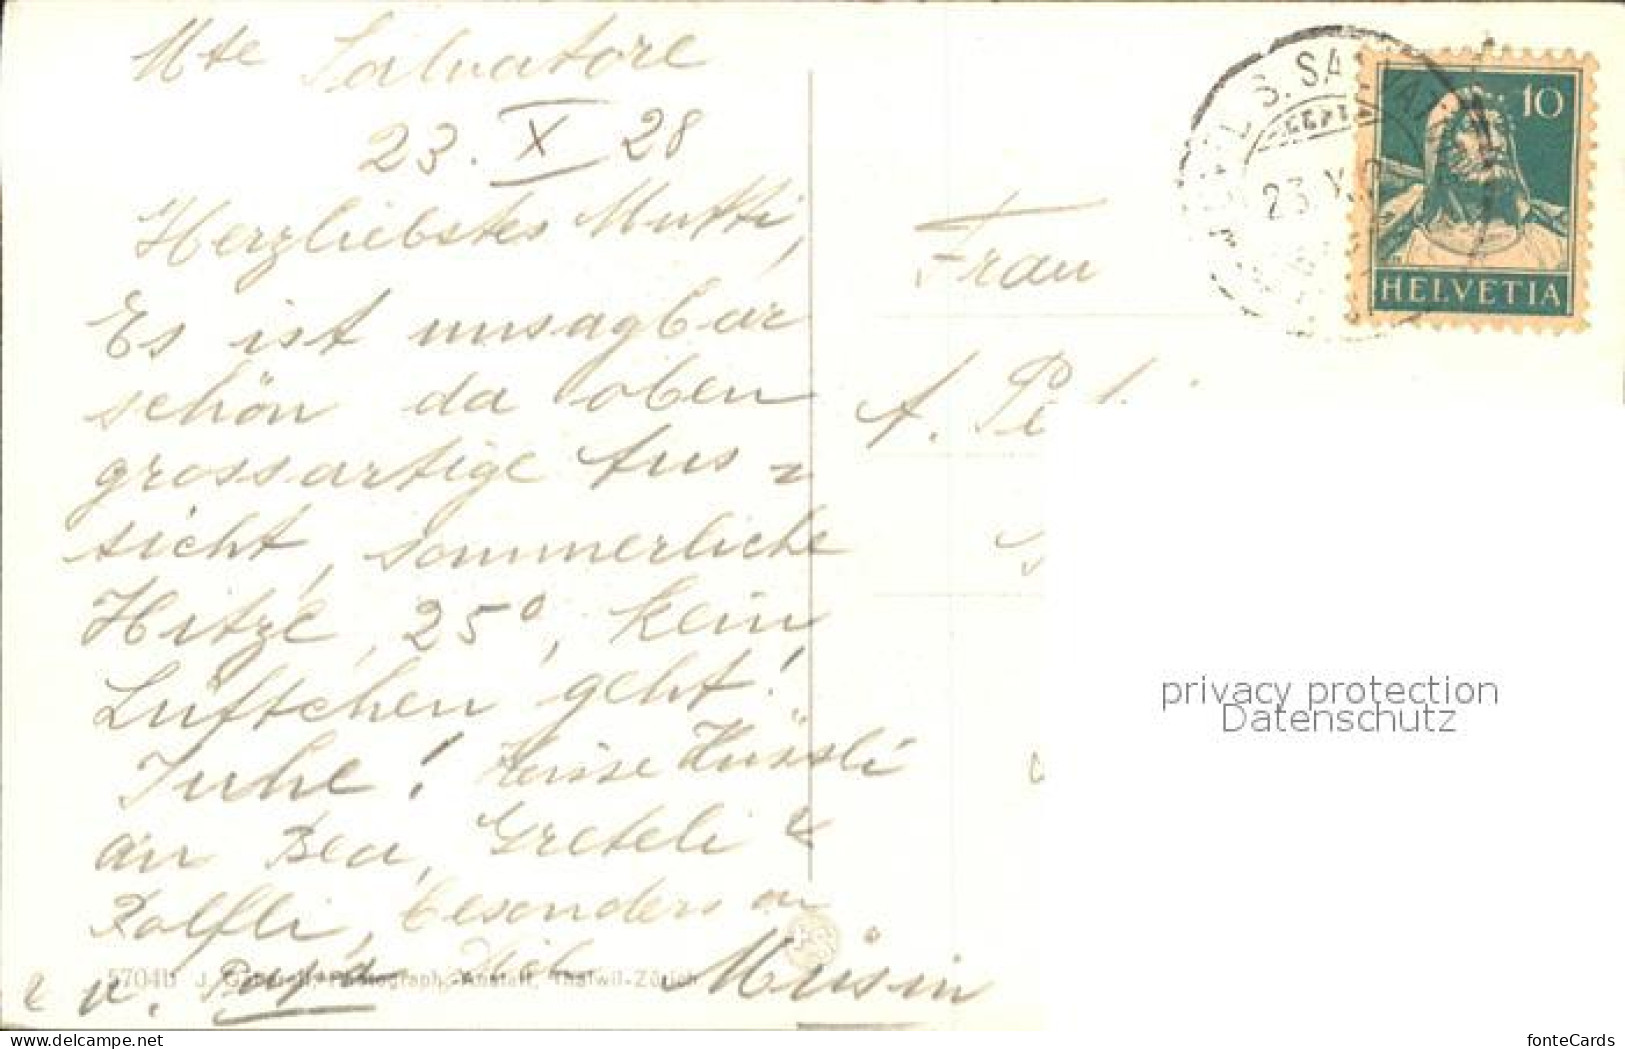 Mte Salvatore
23. X 28
Herzliebstes Mutti,
Es ist unsagbar
schön da oben
grossartige Aus-
sicht, sommerliche
Hitze, 25°, kein
Lüftchen geht!
Juhe! Heisse Küssli
an Bea, Greteli &
Rolfli, besonders an
Dich Müsin
& v. Papa
5704b J. Gaberell, Photograph.-Anstalt, Thalwil-Zürich
Frau
A.
S. SALVATORE
23. X.
10
HELVETIA
privacy protection
Datenschutz
www.delcampe.net
fonteCards